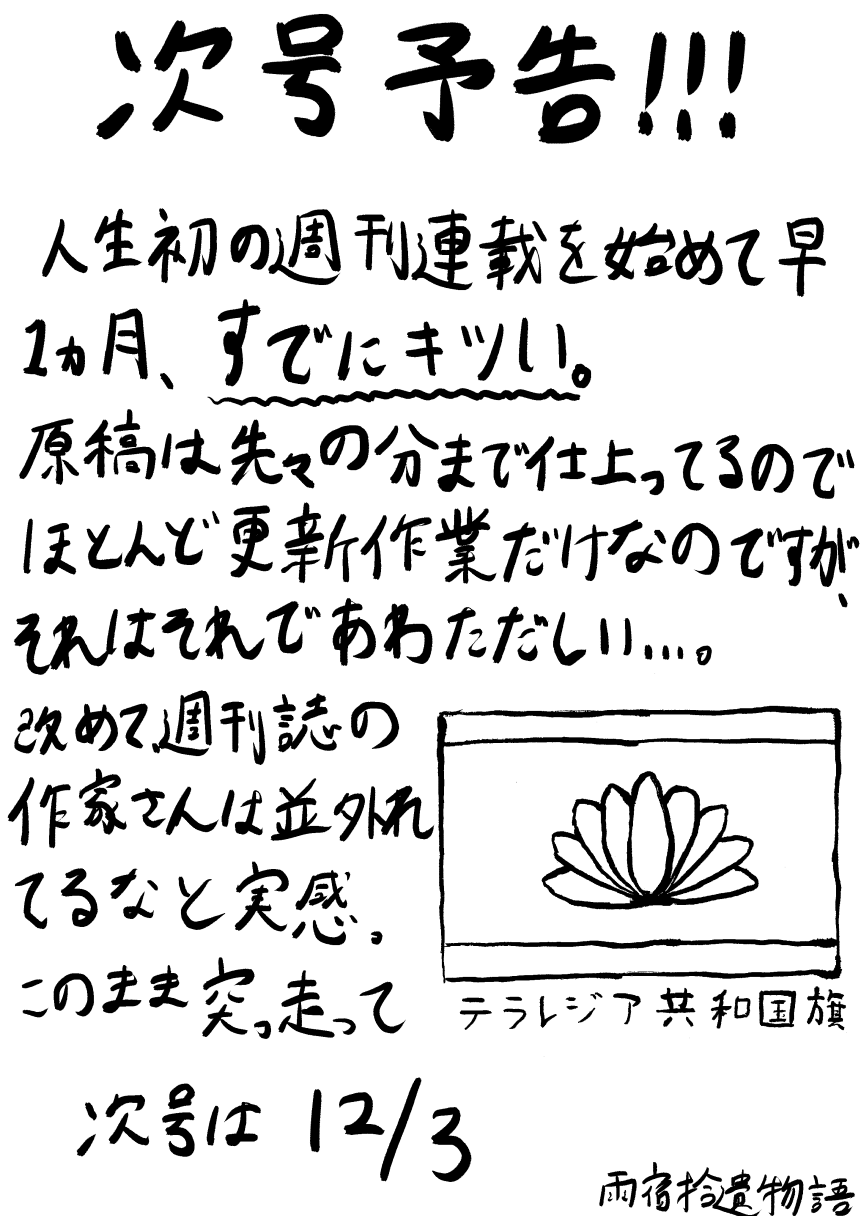 次号予告!!!
人生初の週刊連載を始めて早
1ヵ月、すでにキツい。
原稿は先々の分まで仕上ってるので
ほとんど更新作業だけなのですが、
それはそれであわただしい…。
改めて、週刊誌の
作家さんは並外れ
てるなと実感。
このまま突っ走って
テラレジア共和国旗
次号は 12/3
雨宿拾遺物語